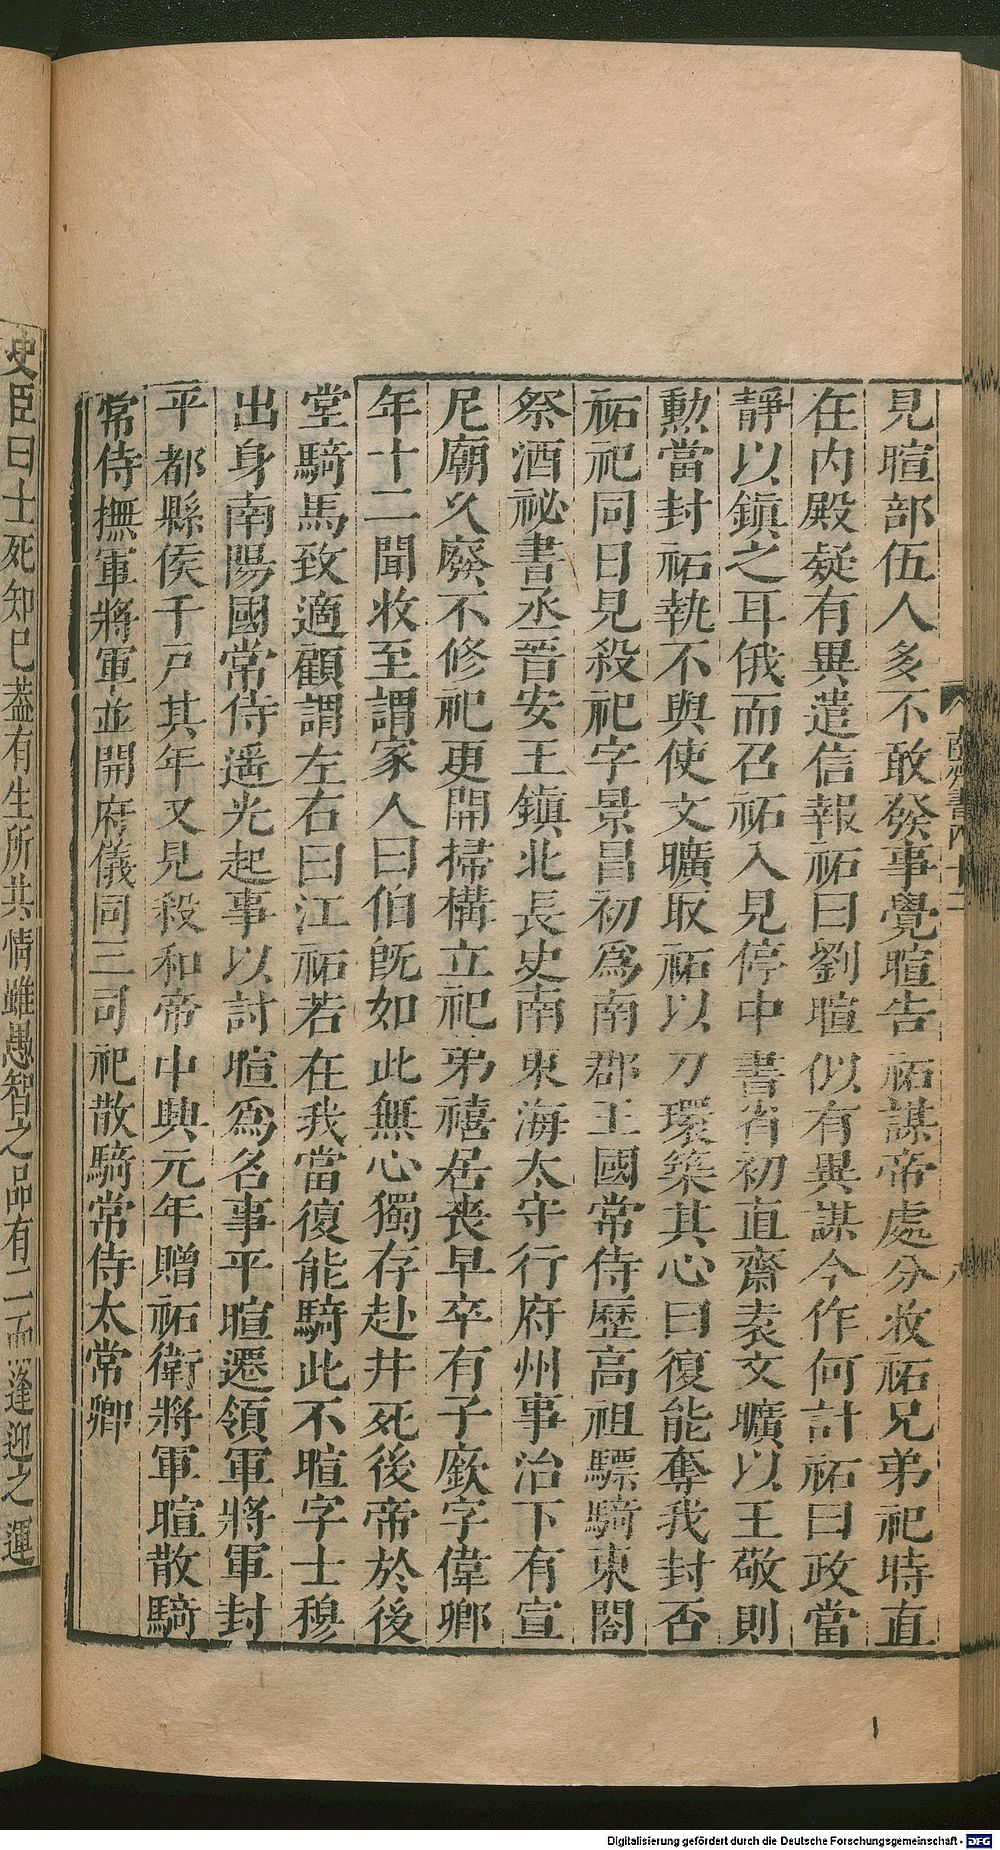 見暄部伍人多不敢發事覺暄告祏謀帝處分收祏兄弟祀時直
在內殿疑有異遣信報祏曰劉暄似有異謀今作何計祏曰政當
靜以鎮之耳俄而召祏入見停中書省初直齋袁文曠以王敬則
勳當封祏執不與使文曠取祏以刀環築其心曰復能奪我封否
祏祀同日見殺祀字景昌初爲南郡王國常侍歷高祖驃騎東閤
祭酒祕書丞晉安王鎮北長史南東海太守行府州事治下有宣
尼廟久廢不修祀更開掃構立祀弟禧居喪早卒有子廞字偉卿
年十二聞收至謂家人曰伯旣如此無心獨存赴井死後帝於後
堂騎馬致適顧謂左右曰江祏若在我當復能騎此不暄字士穆
出身南陽國常侍遥光起事以討暄爲名事平暄遷領軍將軍封
平都縣侯千戸其年又見殺和帝中興元年贈祏衛將軍暄散騎
常侍撫軍將軍並開府儀同三司祀散騎常侍太常卿
史臣曰士死知已蓋有生所共情雖愚智之品有二而逢迎之運
Digitalisierung gefördert durch die Deutsche Forschungsgemeinschaft - DFG